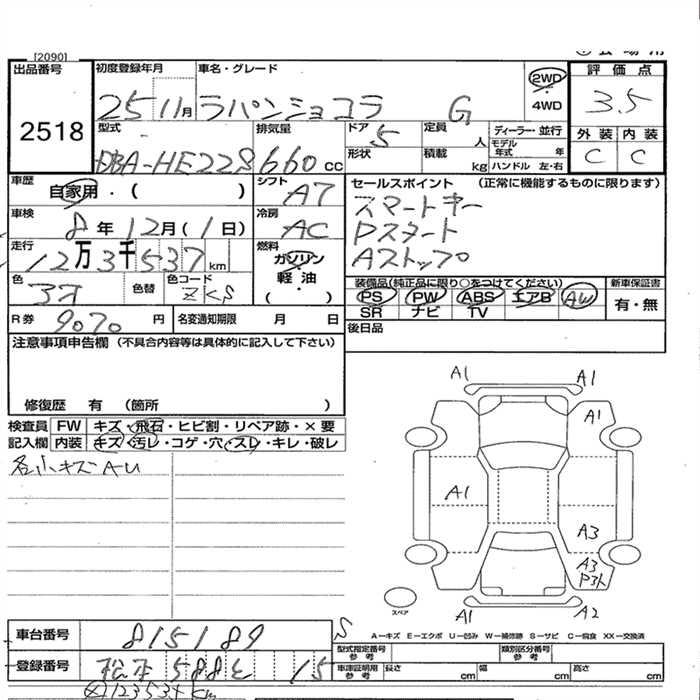 [2090]
出品番号
2518
初度登録年月
25 11月
車名・グレード
ラパンショコラ G
2WD
・
4WD
評価点
3.5
外装 内装
C C
型式
DBA-HE22S
排気量
660 cc
ドア
5
形状
定員
人
積載
kg
ディーラー・並行
モデル年式 年
ハンドル 左・右
車歴
自家用・( )
シフト
A7
車検
8年12月(1日)
冷房
AC
走行
12万3千537km
燃料
ガソリン
軽・油
( )
色
色替
色コード
ZKS
R券
9070円
名変通知期限 月 日
セールスポイント (正常に機能するものに限ります)
スマートキー
Pスタート
Aストップ
装備品(純正品に限り○をつけてください)
PS PW ABS エアB AW
SR ナビ TV
新車保証書
有・無
後日品
注意事項申告欄 (不具合内容等は具体的に記入して下さい)
修復歴 有 (箇所 )
検査員記入欄
FW キズ・飛石・ヒビ割・リペア跡・×要
内装 キズ・汚レ・コゲ・穴・スレ・キレ・破レ
各小キズAU
A1 A1
A1
A1
A3
A3
A1 A2
スペア
A-キズ E-エクボ U-凹み W-補修跡 S-サビ C-腐食 XX-交換済
車台番号
815189
S
登録番号
松本 588 15
型式指定番号参考
類別区分番号参考
車庫証明用参考
長さ cm 幅 cm 高さ cm